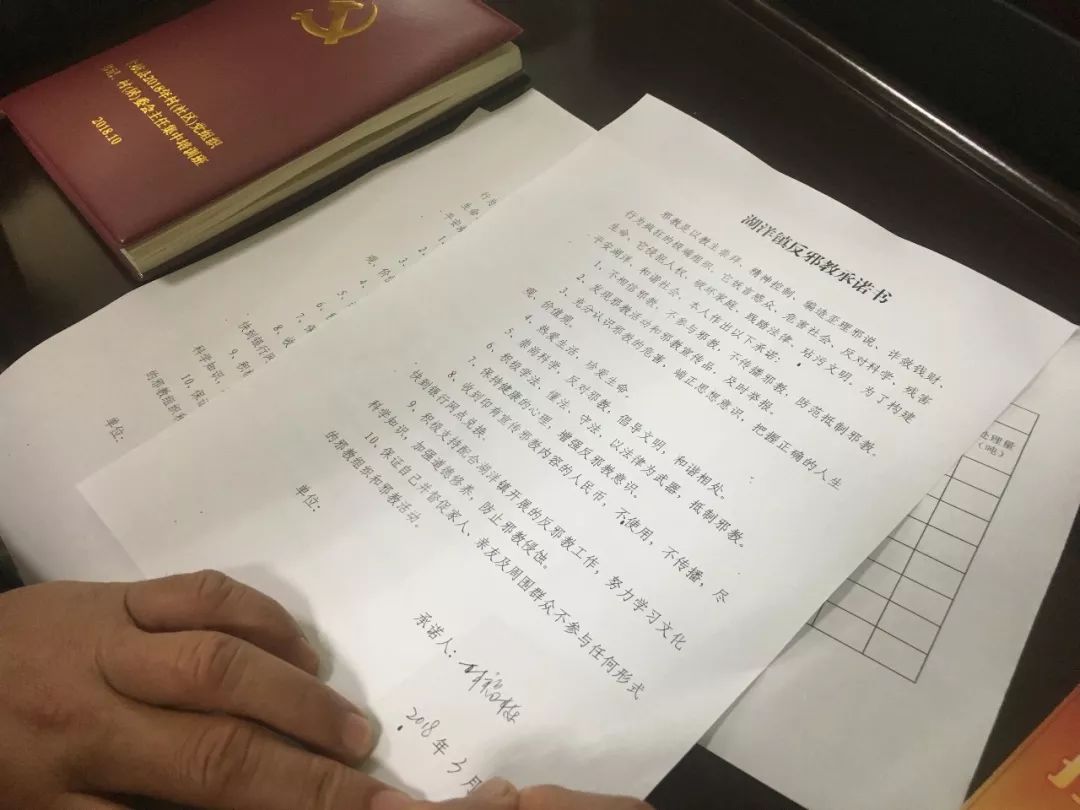 杭县2018年村(社区)党组织
书记、村(居)委会主任集中培训班
2018.10
湖洋镇反邪教承诺书
邪教是以教主崇拜、精神控制、编造歪理邪说、诈敛钱财、
行为疯狂的极端组织、它妖言惑众、危害社会、反对科学、戕害
生命、它侵犯人权、破坏家庭、践踏法律、玷污文明。为了构建
平安湖洋、和谐社会、本人作出以下承诺:
1、不相信邪教、不参与邪教,不传播邪教,防范抵制邪教。
2、发现邪教活动和邪教宣传品,及时举报。
3、充分认识邪教的危害,端正思想意识,把握正确的人生
观、价值观。
4、热爱生活,珍爱生命。
5、崇尚科学、反对邪教,倡导文明,和谐相处。
6、积极学法、懂法、守法、以法律为武器,抵制邪教。
7、保持健康的心理,增强反邪教意识。
8、收到印有宣传邪教内容的人民币,不使用,不传播,尽
快到银行网点兑换。
9、积极支持配合湖洋镇开展的反邪教工作,努力学习文化
科学知识,加强道德修养,防止邪教侵蚀。
10、保证自己并督促家人、亲友及周围群众不参与任何形式
的邪教组织和邪教活动。
单位:
承诺人:
2018年3月
行为
生命、
平安
1、
2、
3、
观、价
4、
5、
6、
7、保
8、收
快到银行网
9、积
科学知识,
10、保证
的邪教组织
单位:
处理量
(吨)